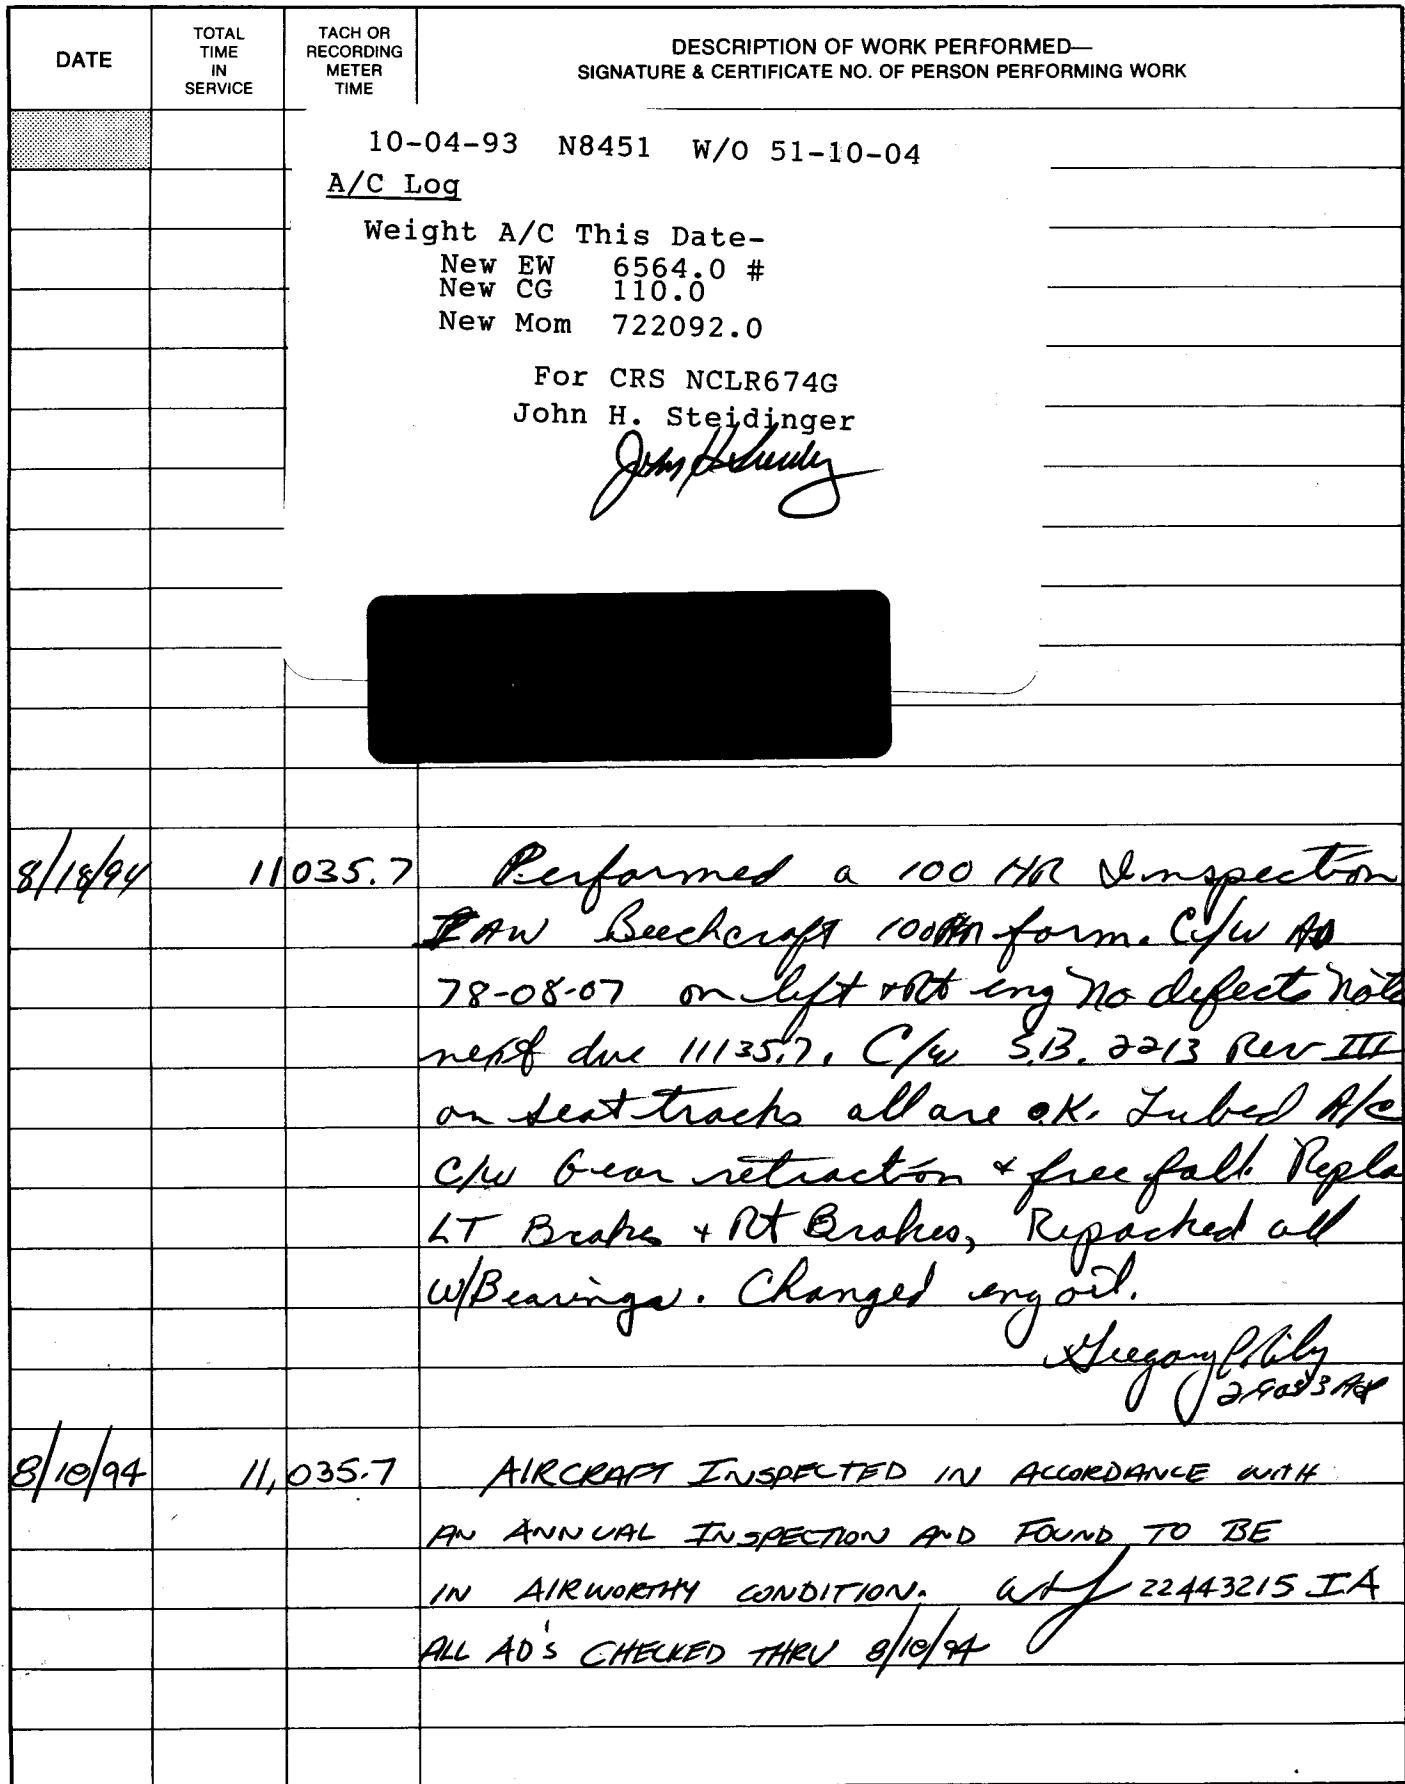 DATE
TOTAL TIME IN SERVICE
TACH OR RECORDING METER TIME
DESCRIPTION OF WORK PERFORMED—
SIGNATURE & CERTIFICATE NO. OF PERSON PERFORMING WORK
10-04-93 N8451 W/O 51-10-04
A/C Log
Weight A/C This Date-
New EW 6564.0 #
New CG 110.0
New Mom 722092.0
For CRS NCLR674G
John H. Steidinger
8/18/94 11035.7 Performed a 100 HR Inspection
IAW Beechcraft 100HR form. C/W AD
78-08-07 on left + Rt eng No defects Note
next due 11135.7. C/W S.B. 2213 Rev III
on seat tracks all are O.K. Lubed A/C
C/W Gear retraction + free fall. Repla
LT Brakes + Rt Brakes, Repacked all
W/Bearings. Changed eng oil.
Gregory
8/18/94 11,035.7 AIRCRAFT INSPECTED IN ACCORDANCE WITH
AN ANNUAL INSPECTION AND FOUND TO BE
IN AIRWORTHY CONDITION. 22443215 IA
ALL AD'S CHECKED THRU 8/18/94